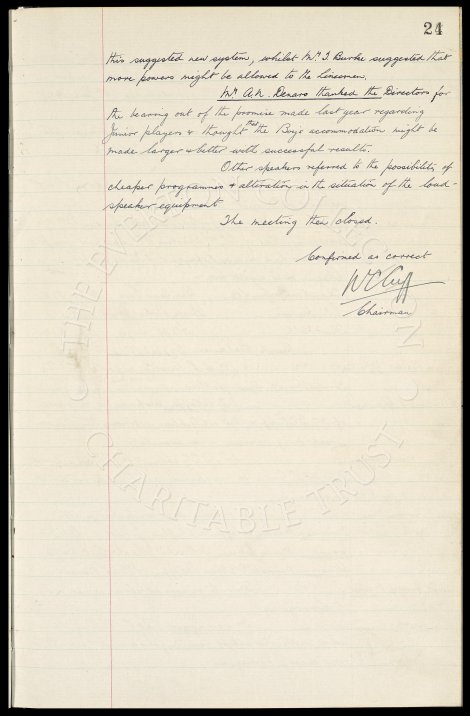 24
this suggested new system, whilst Mr. J. Burke suggested that
more powers might be allowed to the Linesmen.
Mr. A.N. Denaro thanked the Directors for
the bearing out of the promise made last year regarding
Junior players & thought that the Boy's accommodation might be
made larger & better with successful results.
Other speakers referred to the possibility of
cheaper programmes & alteration in the situation of the loud-
speaker equipment
The meeting then closed.
Confirmed as correct
W C Cuff
Chairman
THE EVERTON COLLECTION
CHARITABLE TRUST